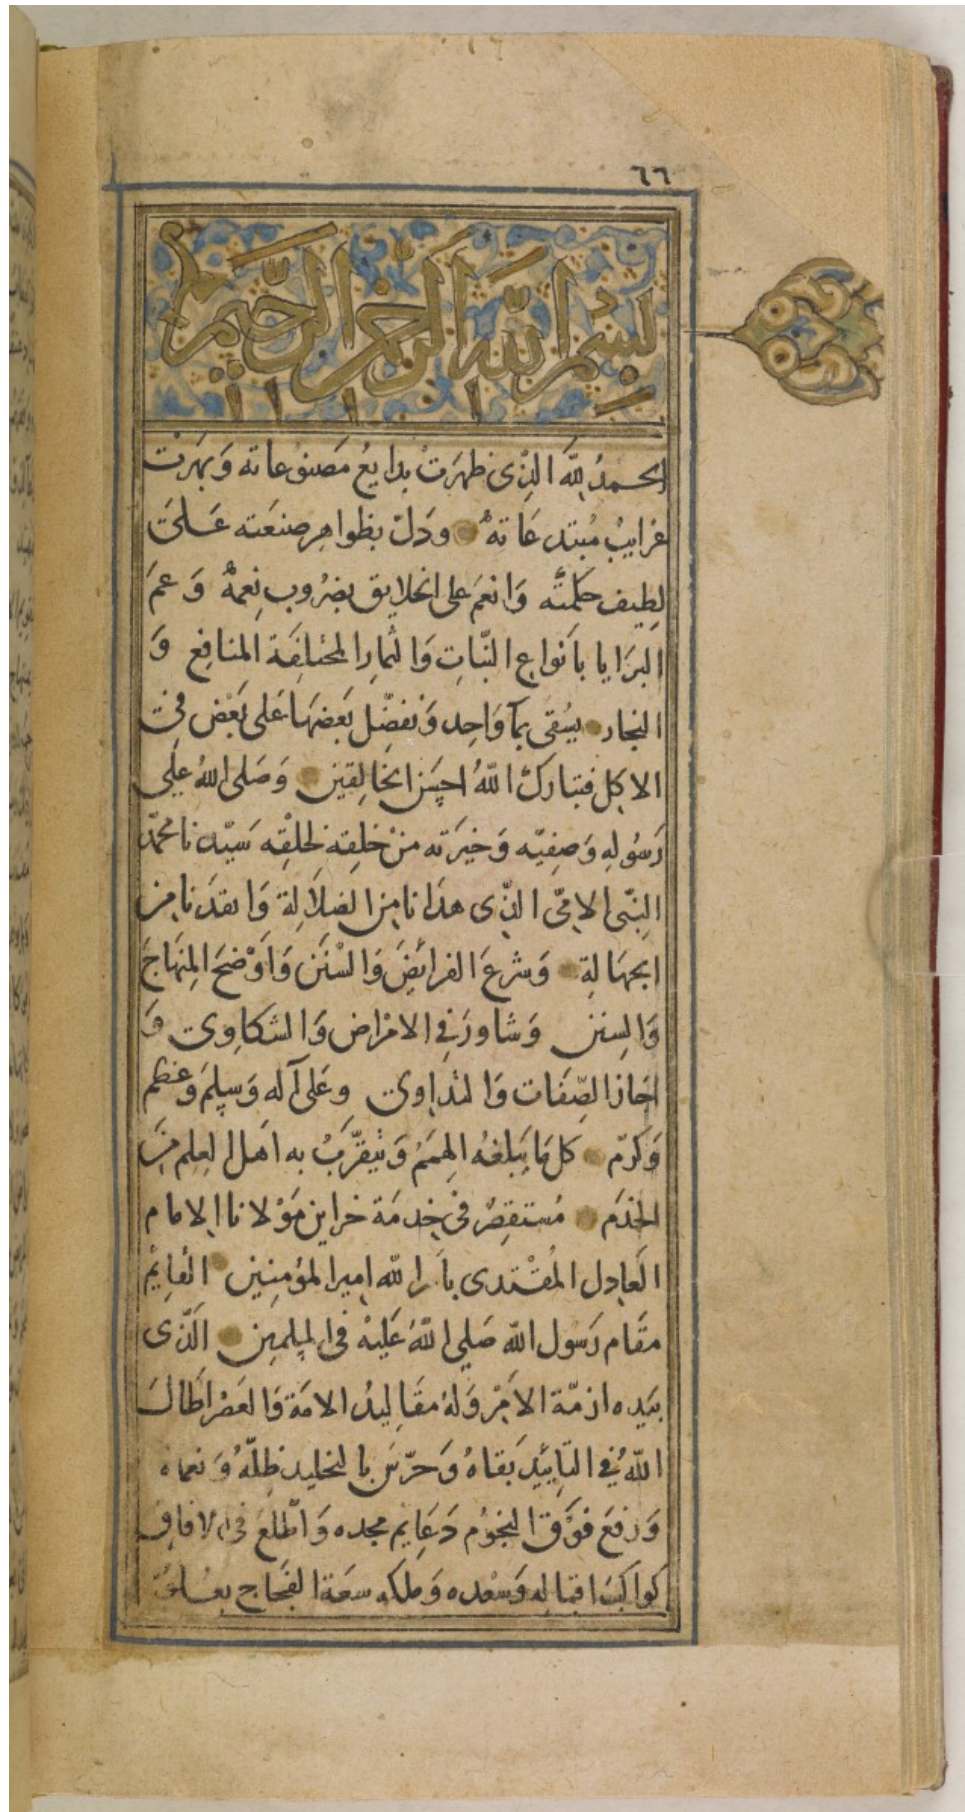 ٦٦
بسم الله الرحمن الرحيم
الحمدُ لِلّه الذّى ظهرَتْ بدايعُ مَصنوُعاته وَبَهَرَتْ
غرايبُ مُبتدعَاته ودَلّ بظواهِر صنعَته عَلىَ
لطِيف حكمته وَانعَم على الخلايق بضرُوب نِعمه وَعمَ
البرَايا بانواع النّباتِ وَالثمار المختلِفَة المنافِع وَ
النجار يسُقى بمآ وَاحِد وَنفضّل بَعضهَا عَلى بَعْض فى
الاكل فتباركَ اللّهُ احسَن الخالقين وَصَلى اللهُ على
رَسُولهِ وَصفيّه وَخيرَته منْ خلقِه لخلْقِه سَيّدنا محمّد
النبّى الامّى الذّى هدَانا مِن الضلاَلة وَانقدنا مِن
الجهَالةِ وَشرعَ الفرائضَ وَالسْنَن وَاوْضحَ المِنهَاجَ
وَالسنن وَشاورَ فى الامْراض وَالشكاوى وَ
اجَاز الصِّفَات وَالتداوى وعَلى آله وَسلمَ وعَظم
وَكرّم كل مَا تبَلغهُ الهِمَمُ وَيتقرّبُ به اهل العِلم مِنَ
الخدَم مُستقصِرٌ فى خِدمَة خزاين مَوْلانا الامام
العَادِل المُقْتدى بامَر اللّه امِير المؤمنِين القايِمْ
مقَام رَسول اللّه صَلي اللّهُ عَليهْ فى المسلمين الَذّى
بيَده ازمّة الاَمْر وَلهُ مقَاليدُ الامَة وَالعَصْر اطَالَ
اللّهُ فى التاَّييد بَقاهُ وَحَرّسَ بالتخليد ظِلّهُ وَنعماه
وَرفعَ فوَق النجوُم دَعَايم مجده وَاَطلعَ فى الافاق
كواكبَ اقباله وَسَعْده وَملكه سعَة الفجَاج